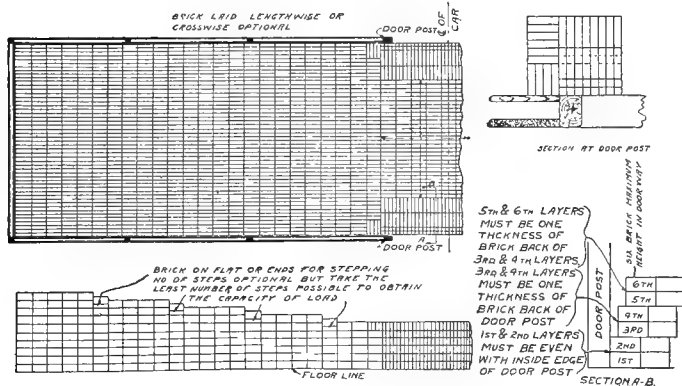 BRICK LAID LENGTHWISE OR
CROSSWISE OPTIONAL
DOOR POST
℄ OF
CAR
SECTION AT DOOR POST
B
A
DOOR POST
BRICK ON FLAT OR ENDS FOR STEPPING
NO OF STEPS OPTIONAL BUT TAKE THE
LEAST NUMBER OF STEPS POSSIBLE TO OBTAIN
THE CAPACITY OF LOAD
FLOOR LINE
5TH & 6TH LAYERS
MUST BE ONE
THCKNESS OF
BRICK BACK OF
3RD & 4TH LAYERS
3RD & 4TH LAYERS
MUST BE ONE
THICKNESS OF
BRICK BACK OF
DOOR POST
1ST & 2ND LAYERS
MUST BE EVEN
WITH INSIDE EDGE
OF DOOR POST
DOOR POST
SIX BRICK MAXIMUM
HEIGHT IN DOOR WAY
6TH
5TH
4TH
3RD
2ND
1ST
SECTION A-B.